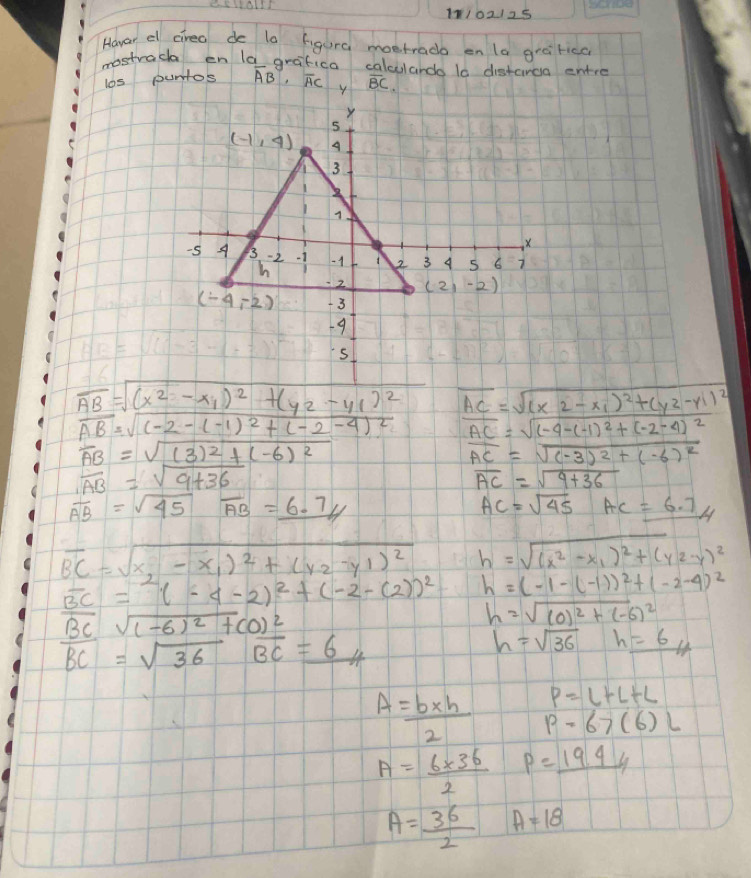 11/02/25
Havar el área de la figura mostrada en la gráfica
mostrada en la gráfica calculando la distancia entre
los puntos AB, AC y BC.
y
5
(-1, 4) 4
3
2
1
-5 -4 -3 -2 -1 1 2 3 4 5 6 7 x
-1
h
-2
(-4,-2) (2,-2)
-3
-4
-5
AB = √(x2 - x1)2 + (y2 - y1)2
AB = √(-2 - (-1)2 + (-2 - 4)2
AB = √(3)2 + (-6)2
AB = √9+36
AB = √45 AB = 6.7
AC = √(x2 - x1)2 + (y2 - y1)2
AC = √(-4-(-1)2 + (-2-4)2
AC = √(-3)2 + (-6)2
AC = √9+36
AC = √45 AC = 6.7
BC = √x2 - x1)2 + (y2 - y1)2
BC = (-4-2)2 + (-2-(2))2
BC √(-6)2 + (0)2
BC = √36 BC = 6
h = √(x2 - x1)2 + (y2-y)2
h = (-1-(-1))2 + (-2-4)2
h = √(0)2 + (-6)2
h = √36 h = 6
A = b x h
2
A = 6x36
2
A = 36
2
A = 18
P = L+L+L
P = 67(6)L
P = 19.4